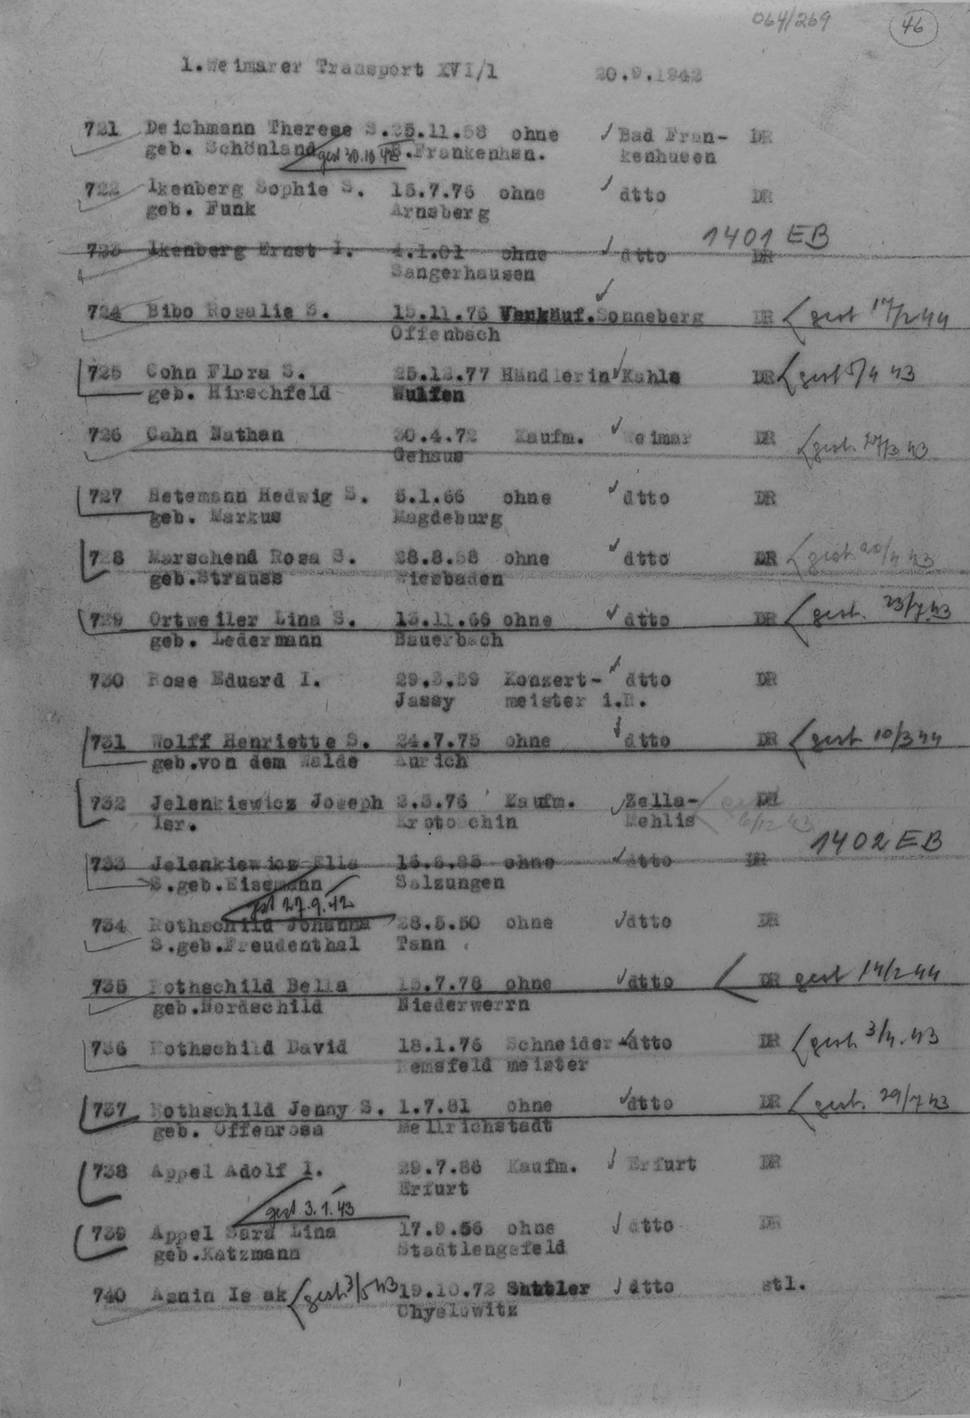 064/269
46
1.Weimarer Transport XVI/1 20.9.1942
721 Deichmann Therese S. 25.11.58 ohne ✓ Bad Fran- DR
geb. Schönland gest 30.10 42 B.Frankenhsn. kenhusen
722 Ikenberg Sophie S. 15.7.76 ohne ✓ dtto DR
geb. Funk Arnsberg
1401 EB
723 Ikenberg Ernst I. 4.1.01 ohne ✓ dtto DR
Sangerhausen
724 Bibo Rosalie S. 15.11.76 Verkäuf. ✓ Sonneberg DR gest 17/2 44
Offenbach
725 Cohn Flora S. 25.12.77 Händlerin ✓ Kahla DR gest 5/4 43
geb. Hirschfeld Wulfen
726 Cahn Nathan 30.4.72 Kaufm. ✓ Weimar DR gest. 43
Gehaus
727 Hetemann Hedwig S. 5.1.66 ohne ✓ dtto DR
geb. Markus Magdeburg
728 Marschend Rosa S. 28.8.58 ohne ✓ dtto DR gest 20/4 43
geb.Strauss Wiesbaden
729 Ortweiler Lina S. 15.11.66 ohne ✓ dtto DR gest. 23/7.43
geb. Ledermann Bauerbach
730 Rose Eduard I. 29.3.59 Konzert- ✓ dtto DR
Jassy meister i.R.
731 Wolff Henriette S. 24.7.75 ohne ✓ dtto DR gest 10/3 44
geb.von dem Walde Aurich
732 Jelenkiewicz Joseph 3.3.76 Kaufm. ✓ Zella- DR
Isr. Krotoschin Mehlis 6/12 43
1402 EB
733 Jelenkiewicz Ella ohne ✓ dtto DR
S.geb.Eisemann Salzungen
gest 27.9.42
734 Rothschild Johanna 28.5.50 ohne ✓ dtto DR
S.geb.Freudenthal Tann
735 Rothschild Bella 15.7.78 ohne ✓ dtto DR gest 14/2 44
geb.Nordschild Niederwerrn
736 Rothschild David 18.1.76 Schneider- ✓ dtto DR gest. 3/4.43
Remsfeld meister
737 Rothschild Jenny S. 1.7.81 ohne ✓ dtto DR gest. 29/7 43
geb. Offenrosa Mellrichstadt
738 Appel Adolf I. 29.7.86 Kaufm. ✓ Erfurt DR
Erfurt
gest 3.1.43
739 Appel Sara Lina 17.9.56 ohne ✓ dtto DR
geb.Katzmann Stadtlengsfeld
740 Asnin Isak gest 3/5 43 19.10.72 Sattler ✓ dtto stl.
Chyslowitz